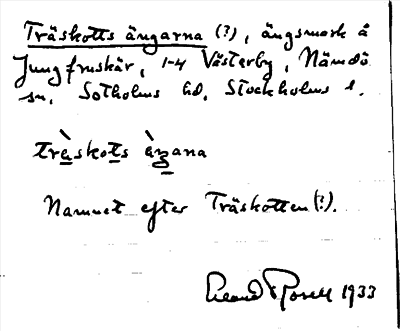 Träskotts ängarna (?), ängsmark å
Jungfruskär, 1-4 Västerby, Nämdö
sn, Sotholms hd, Stockholms l.
tràskots àŋana
Namnet efter Träskotten (?).
Erland Rosell 1933